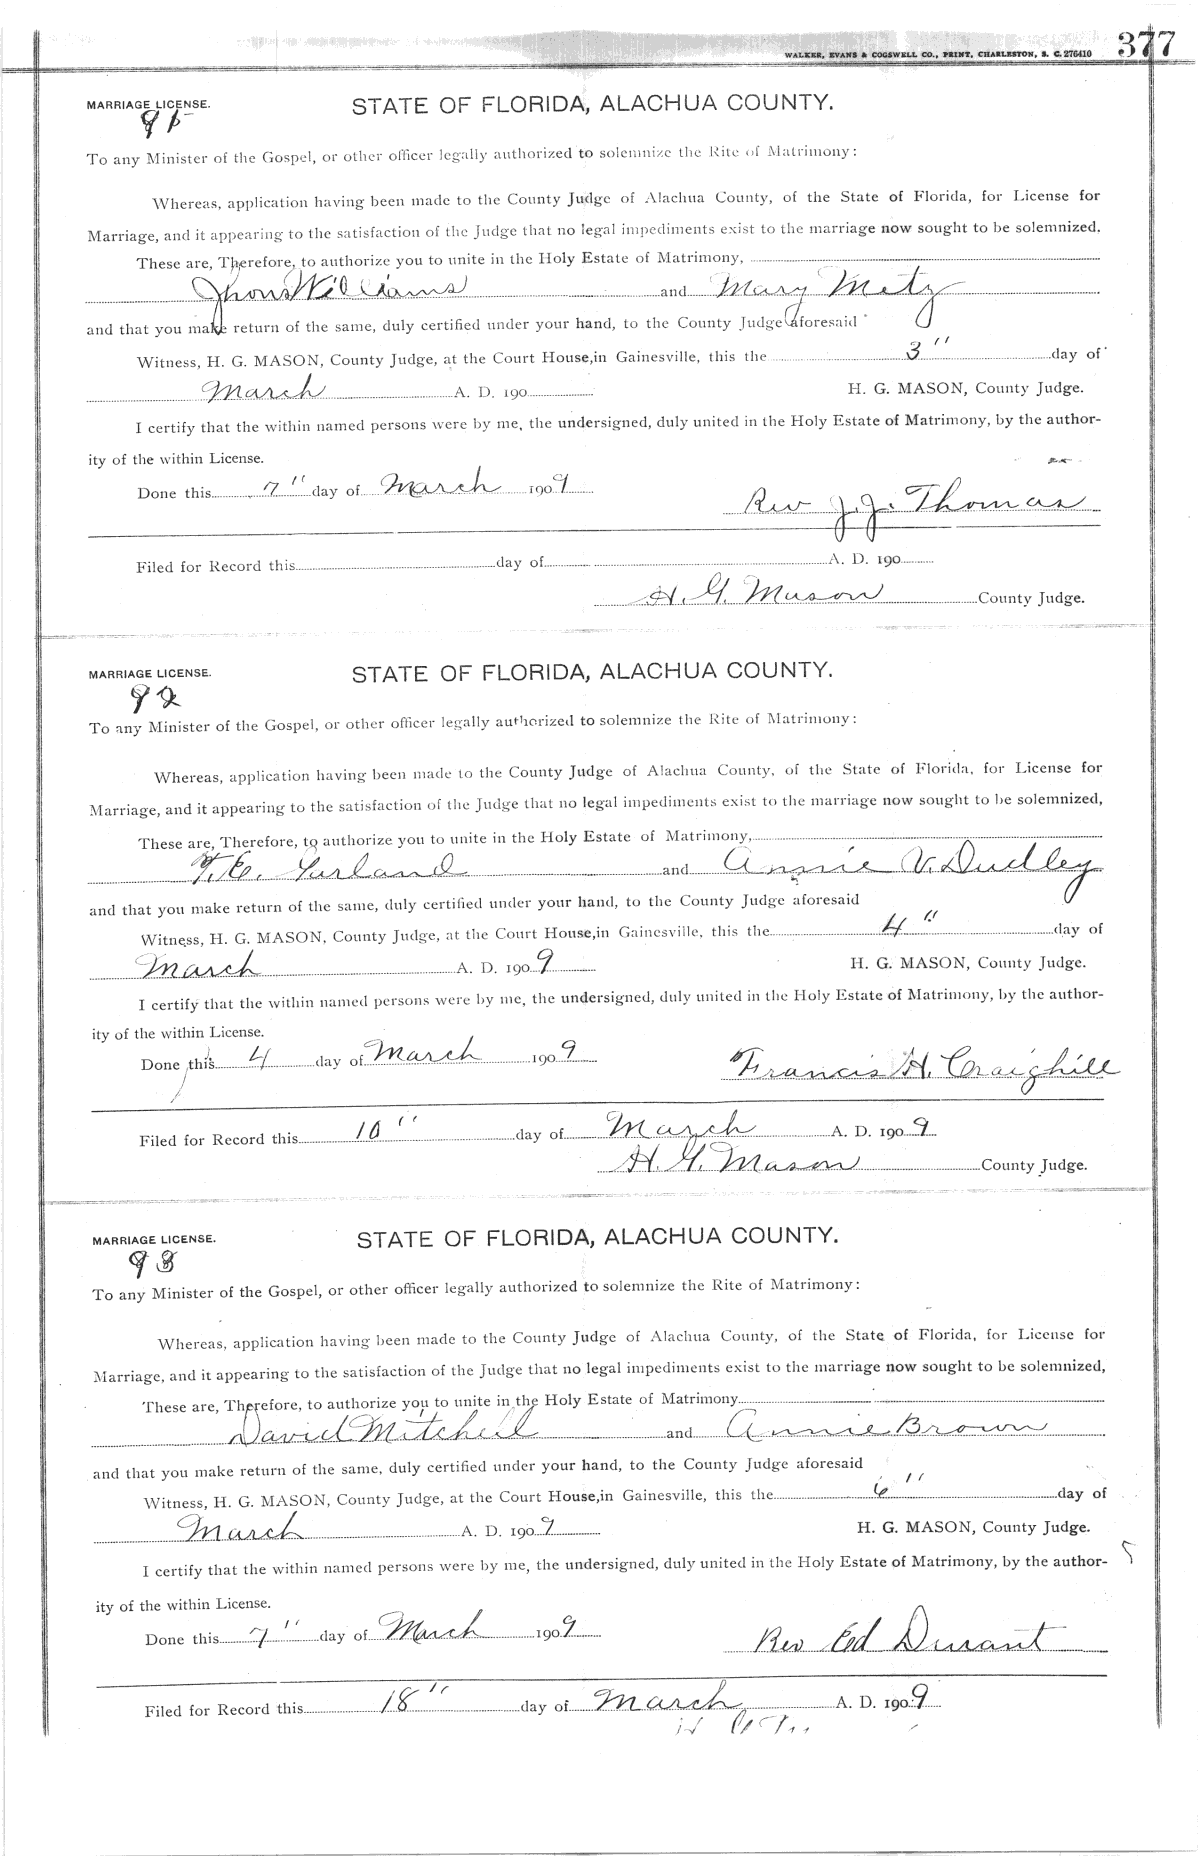 WALKER, EVANS & COGSWELL CO., PRINT, CHARLESTON, S. C. 276410 377
MARRIAGE LICENSE. STATE OF FLORIDA, ALACHUA COUNTY.
To any Minister of the Gospel, or other officer legally authorized to solemnize the Rite of Matrimony:
Whereas, application having been made to the County Judge of Alachua County, of the State of Florida, for License for
Marriage, and it appearing to the satisfaction of the Judge that no legal impediments exist to the marriage now sought to be solemnized.
These are, Therefore, to authorize you to unite in the Holy Estate of Matrimony,
Jhons Williams and Mary Metz
and that you make return of the same, duly certified under your hand, to the County Judge aforesaid
Witness, H. G. MASON, County Judge, at the Court House, in Gainesville, this the 3" day of
March A. D. 190 H. G. MASON, County Judge.
I certify that the within named persons were by me, the undersigned, duly united in the Holy Estate of Matrimony, by the author-
ity of the within License.
Done this 7" day of March 1909
Rev J. J. Thomas
Filed for Record this day of A. D. 190
H. G. Mason County Judge.
MARRIAGE LICENSE. STATE OF FLORIDA, ALACHUA COUNTY.
92
To any Minister of the Gospel, or other officer legally authorized to solemnize the Rite of Matrimony:
Whereas, application having been made to the County Judge of Alachua County, of the State of Florida, for License for
Marriage, and it appearing to the satisfaction of the Judge that no legal impediments exist to the marriage now sought to be solemnized,
These are, Therefore, to authorize you to unite in the Holy Estate of Matrimony,
Garland and Annie V. Dudley
and that you make return of the same, duly certified under your hand, to the County Judge aforesaid
Witness, H. G. MASON, County Judge, at the Court House, in Gainesville, this the 4" day of
March A. D. 1909 H. G. MASON, County Judge.
I certify that the within named persons were by me, the undersigned, duly united in the Holy Estate of Matrimony, by the author-
ity of the within License.
Done this 4 day of March 1909
Francis H. Craighill
Filed for Record this 10" day of March A. D. 1909
H. G. Mason County Judge.
MARRIAGE LICENSE. STATE OF FLORIDA, ALACHUA COUNTY.
93
To any Minister of the Gospel, or other officer legally authorized to solemnize the Rite of Matrimony:
Whereas, application having been made to the County Judge of Alachua County, of the State of Florida, for License for
Marriage, and it appearing to the satisfaction of the Judge that no legal impediments exist to the marriage now sought to be solemnized,
These are, Therefore, to authorize you to unite in the Holy Estate of Matrimony
David Mitchell and Annie Brown
and that you make return of the same, duly certified under your hand, to the County Judge aforesaid
Witness, H. G. MASON, County Judge, at the Court House, in Gainesville, this the 6" day of
March A. D. 1909 H. G. MASON, County Judge.
I certify that the within named persons were by me, the undersigned, duly united in the Holy Estate of Matrimony, by the author-
ity of the within License.
Done this 7" day of March 1909
Rev Ed Durant
Filed for Record this 18" day of March A. D. 1909